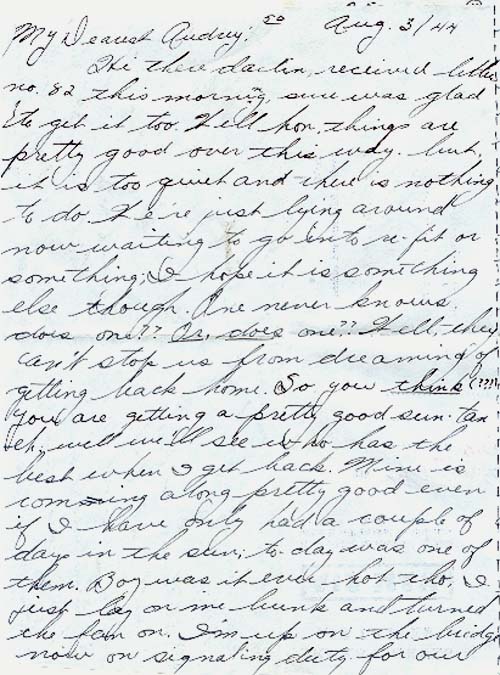 My Dearest Audrey; 50 Aug. 3/44
Hi there darlin, received letter
no. 82 this morning, sure was glad
to get it too. Well hon, things are
pretty good over this way. but,
it is too quiet and there is nothing
to do. We're just lying around
now waiting to go into re-fit or
something; I hope it is something
else though. One never knows
does one?? Or, does one?? Well, they
can't stop us from dreaming of
getting back home. So you think (???)
you are getting a pretty good sun-tan
eh, well we'll see who has the
best when I get back. Mine is
comming along pretty good even
if I have only had a couple of
days in the sun; to-day was one of
them. Boy was it ever hot tho, I
just lay on me bunk and turned
the fan on. I'm up on the bridge
now on signaling duty for our